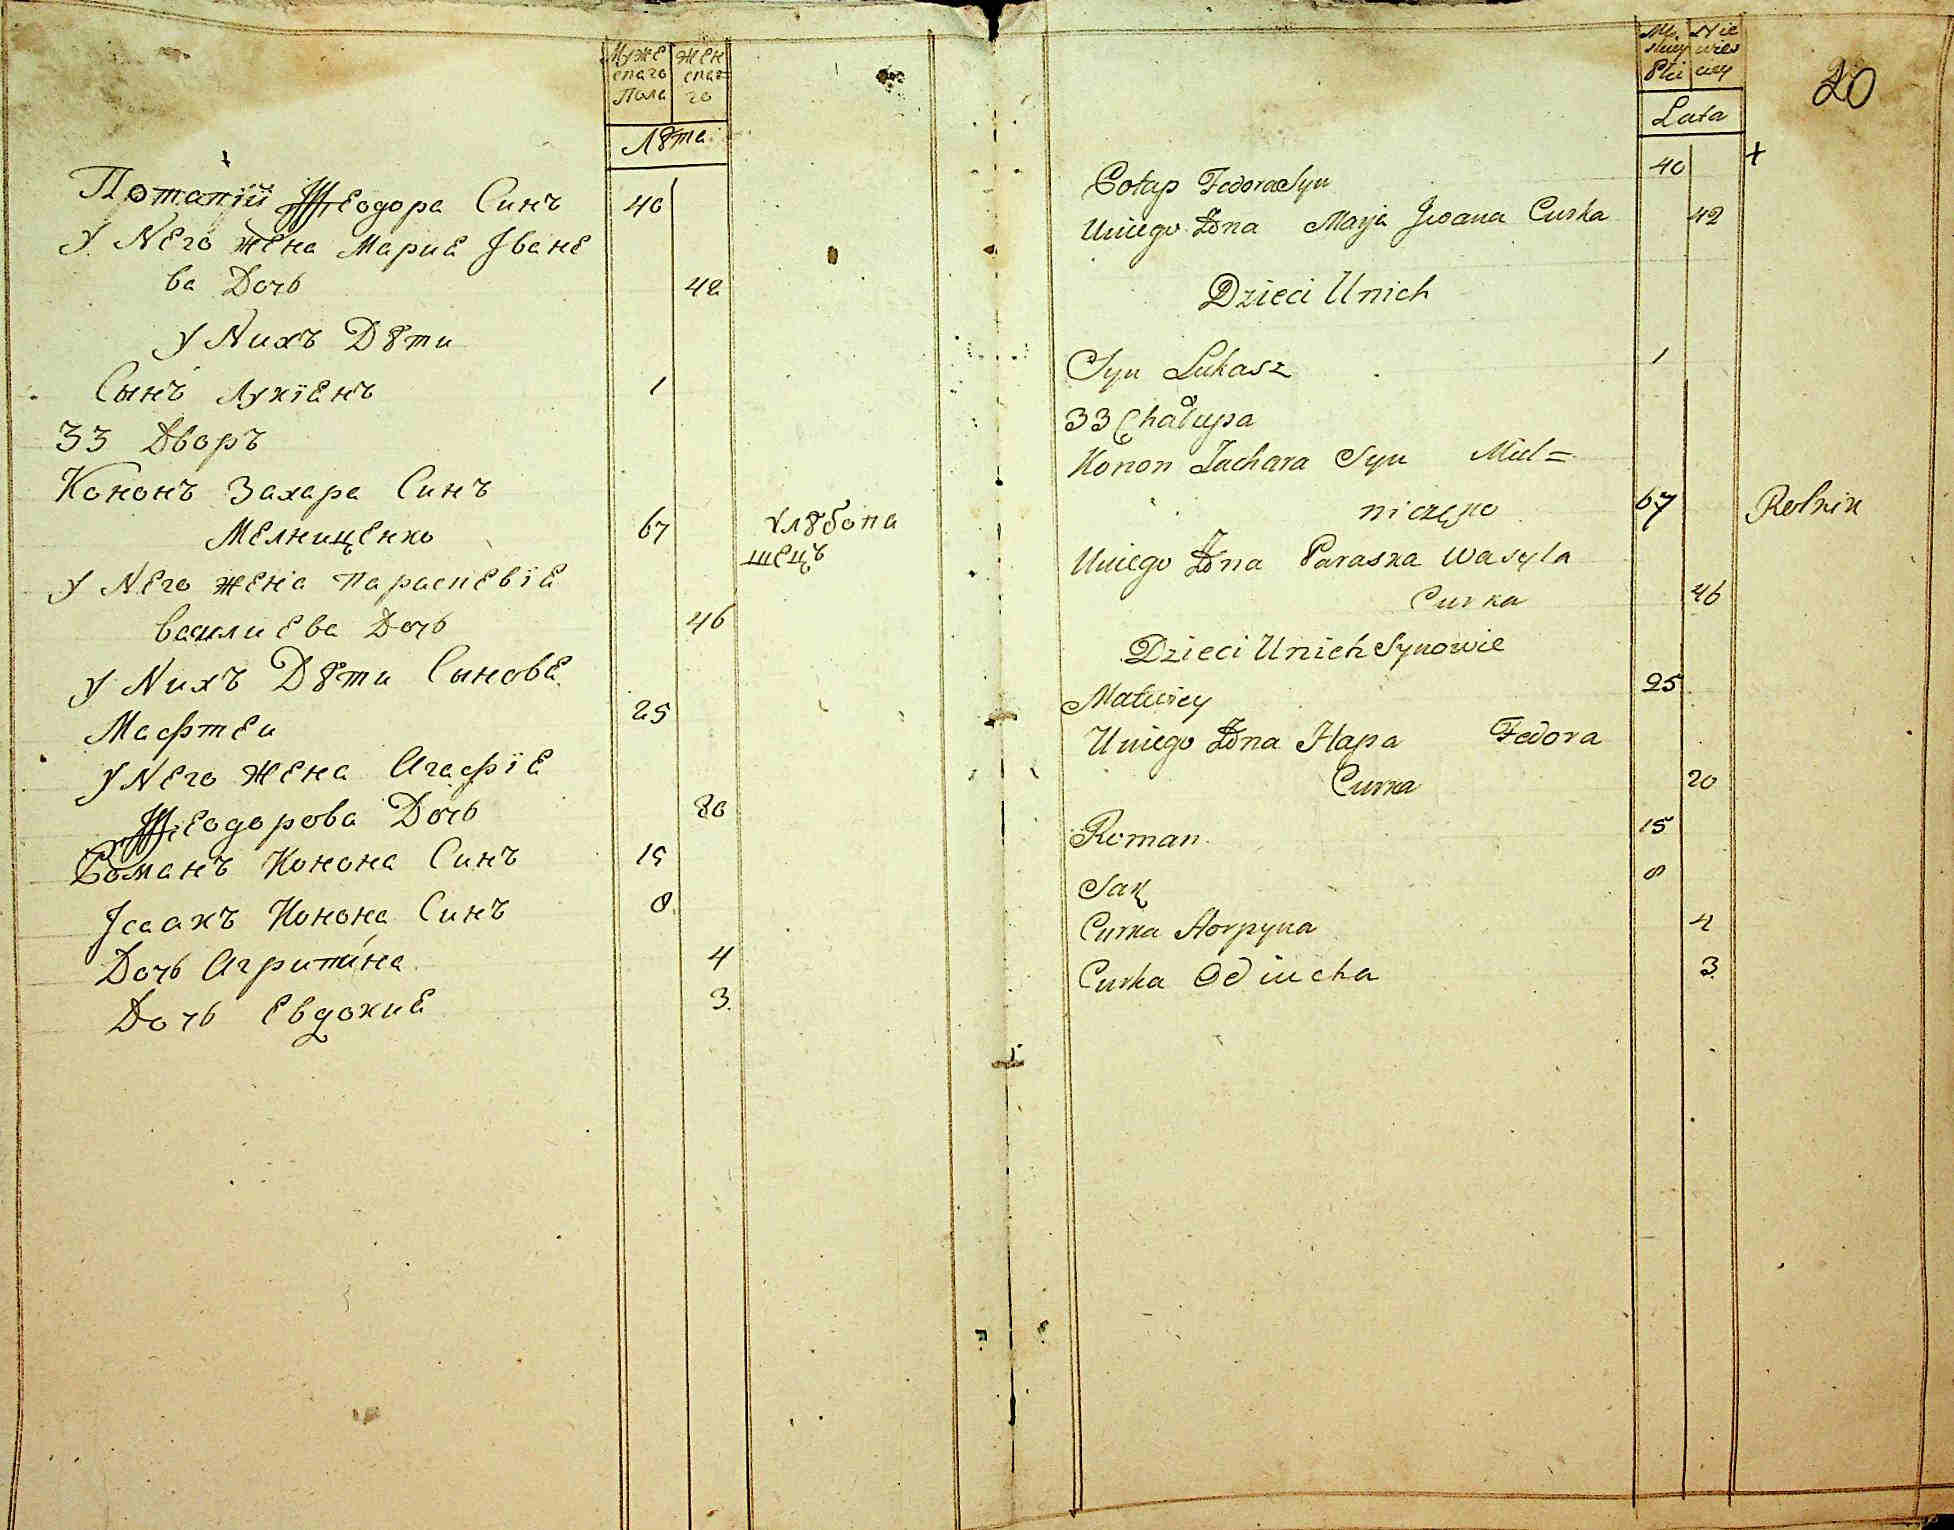 Муже
скаго
Пола
Жен
скаг=
го
Лѣта
Потапій Ѳеодора Синъ 40
У Него жена Мариѣ Іване
ва Дочь 42
у Нихъ Дѣти
Сынъ Лукіенъ 1
33 Дворъ
Кононъ Захара Синъ
Мелниценко 67 Хлѣбопа
шецъ
у Него жена Параскевіе
васили ева Дочь 46
у Нихъ Дѣти Сынове
Мафтеи 25
у Него жена Агафіе
Ѳеодорова Дочь 20
Романъ Конона Синъ 15
Ісаакъ Конона Синъ 8
Дочь Агрипина 4
Дочь Евдокие 3
20
Mę
skiey
Płci
Nie
wies
ciey
Lata
Potap Fedora Syn 40
U niego Żona Marja Jwana Curka 42
Dzieci U nich
Syn Łukasz 1
33 Chałupa
Konon Zachara Syn Miel=
niczęko 67 Rolnik
U niego Żona Paraska Wasyla
Curka 46
Dzieci U nich Synowie
Matwiey 25
U niego Żona Hapa Fedora
Curka 20
Roman 15
Sak 8
Curka Horpyna 4
Curka Odiucha 3